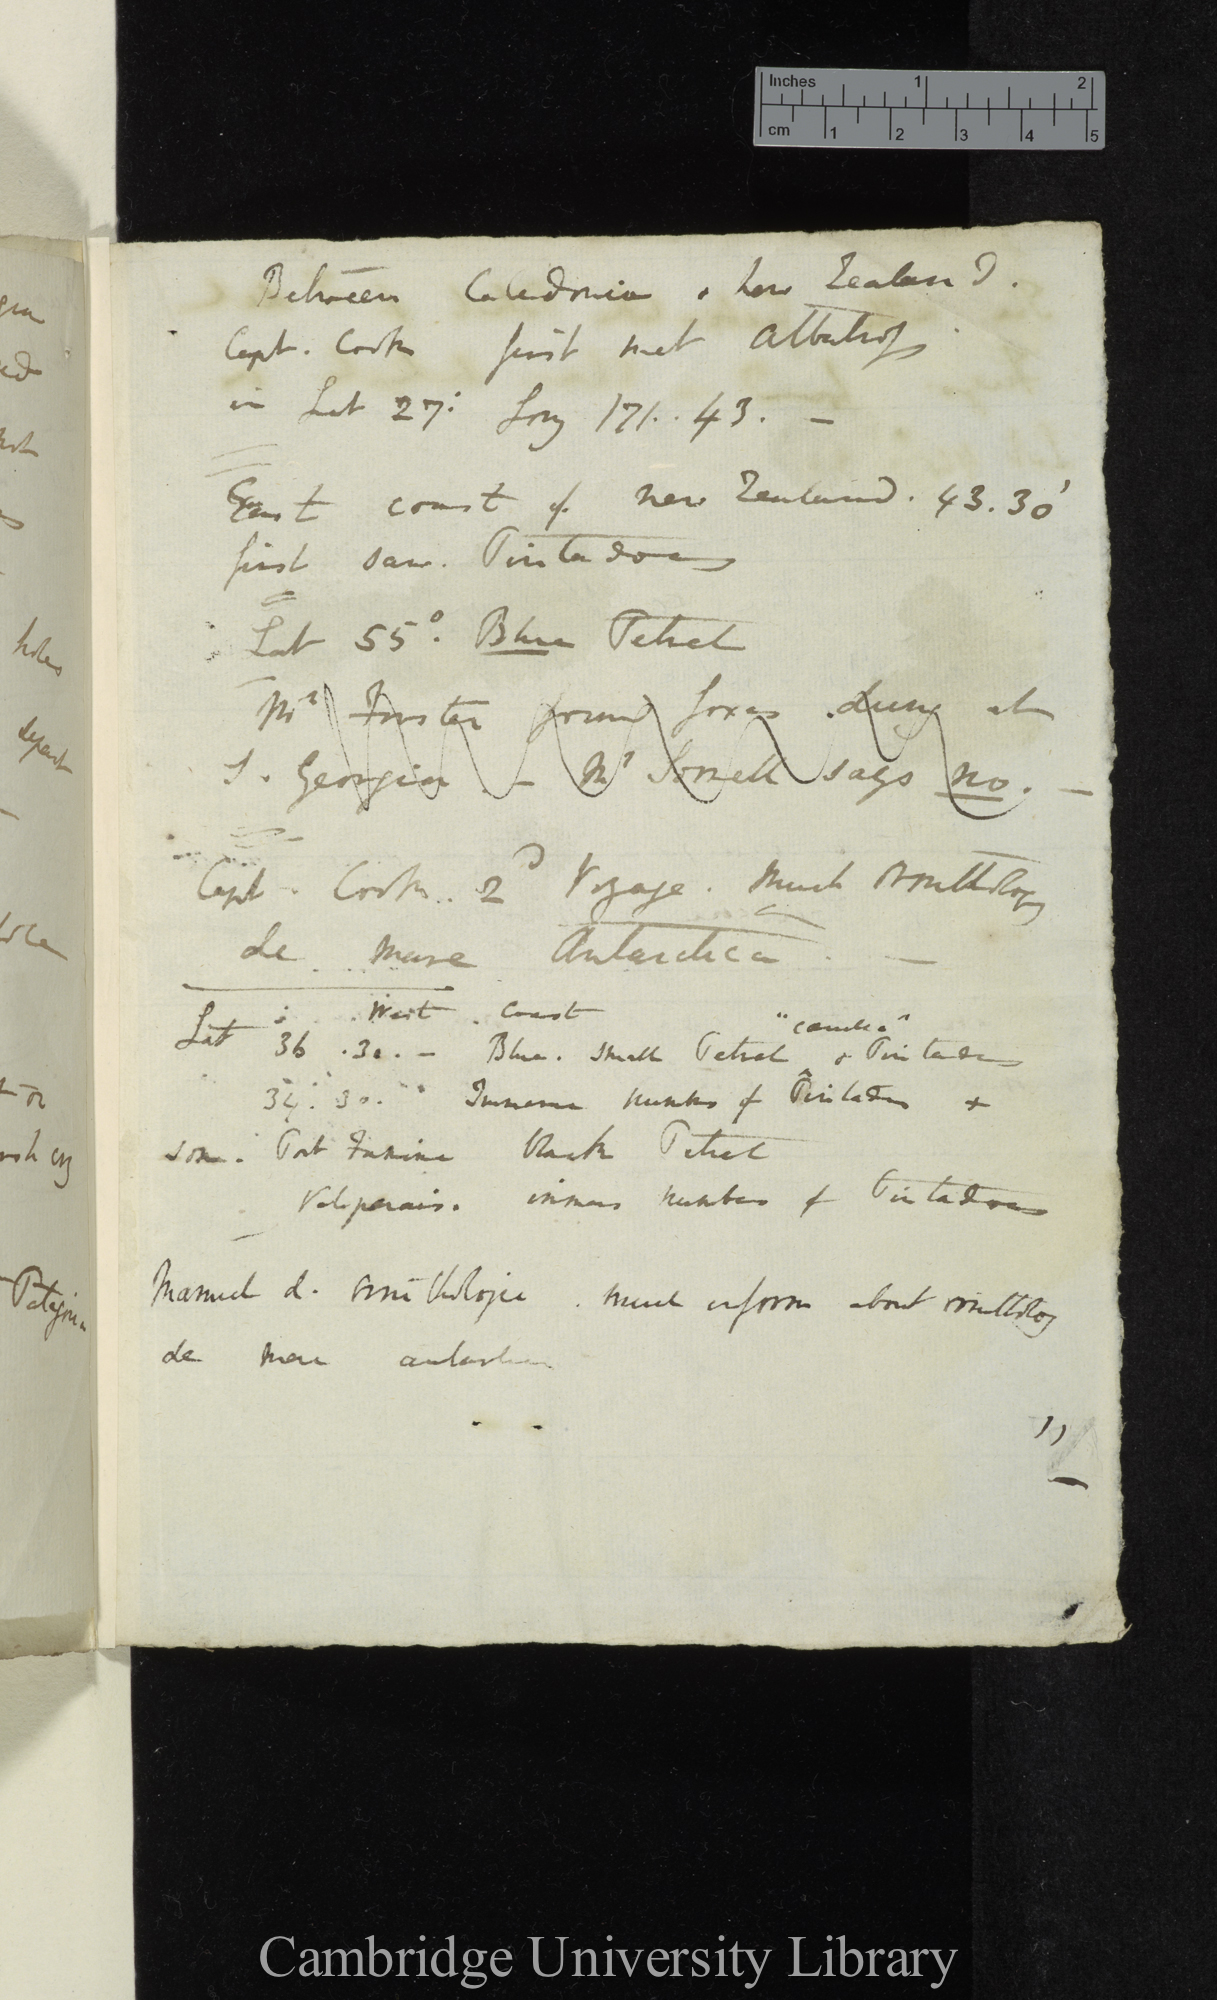 Inches 1 2
cm 1 2 3 4 5
Between Caledonia & New Zealand.
Capt. Cook first met Albatross
in Lat 27: Long 171..43. —
East coast of New Zealand. 43.30'
first saw. Pintadoes
Lat 55°. Blue Petrel
Mr Forster found foxes dung at
S. Georgia — Mr Sorrell says no. —
Capt. Cook.. 2d Voyage. Much ornithology
de mare Antarctica —
West coast
Lat 36.30. — Blue. small Petrel & Pintados
34.30. Immense numbers of Pintados &
some. Port Famine black Petrel
Valparaiso. immense numbers of Pintadoes
Manuel d. ornithologie. much inform about ornitholog
de mare antarctica
holes
depart
Patagonia
Cambridge University Library